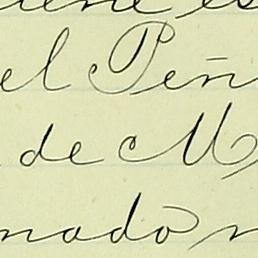 el Peñ
de M
nado